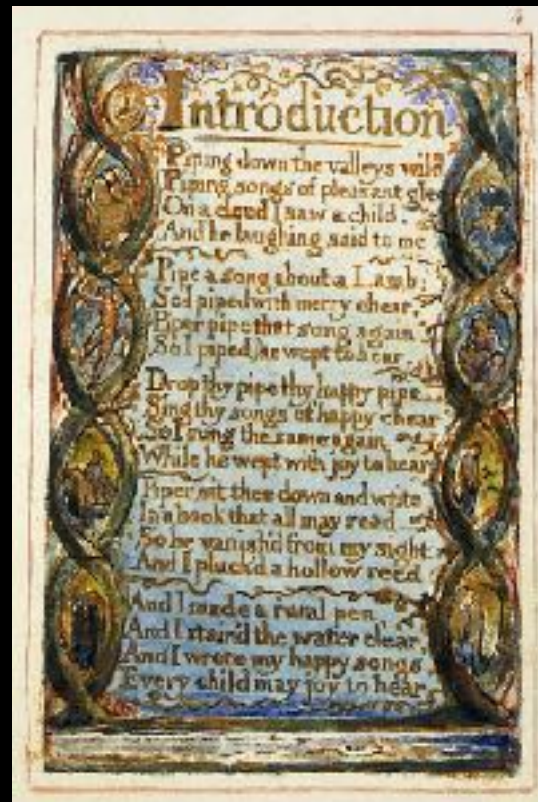 Introduction
Piping down the valleys wild
Piping songs of pleasant glee
On a cloud I saw a child.
And he laughing said to me
Pipe a song about a Lamb;
So I piped with merry chear,
Piper pipe that song again
So I piped, he wept to hear
Drop thy pipe thy happy pipe
Sing thy songs of happy chear
So I sung the same again
While he wept with joy to hear
Piper sit thee down and write
In a book that all may read
So he vanish'd from my sight
And I pluck'd a hollow reed
And I made a rural pen
And I stain'd the water clear,
And I wrote my happy songs
Every child may joy to hear